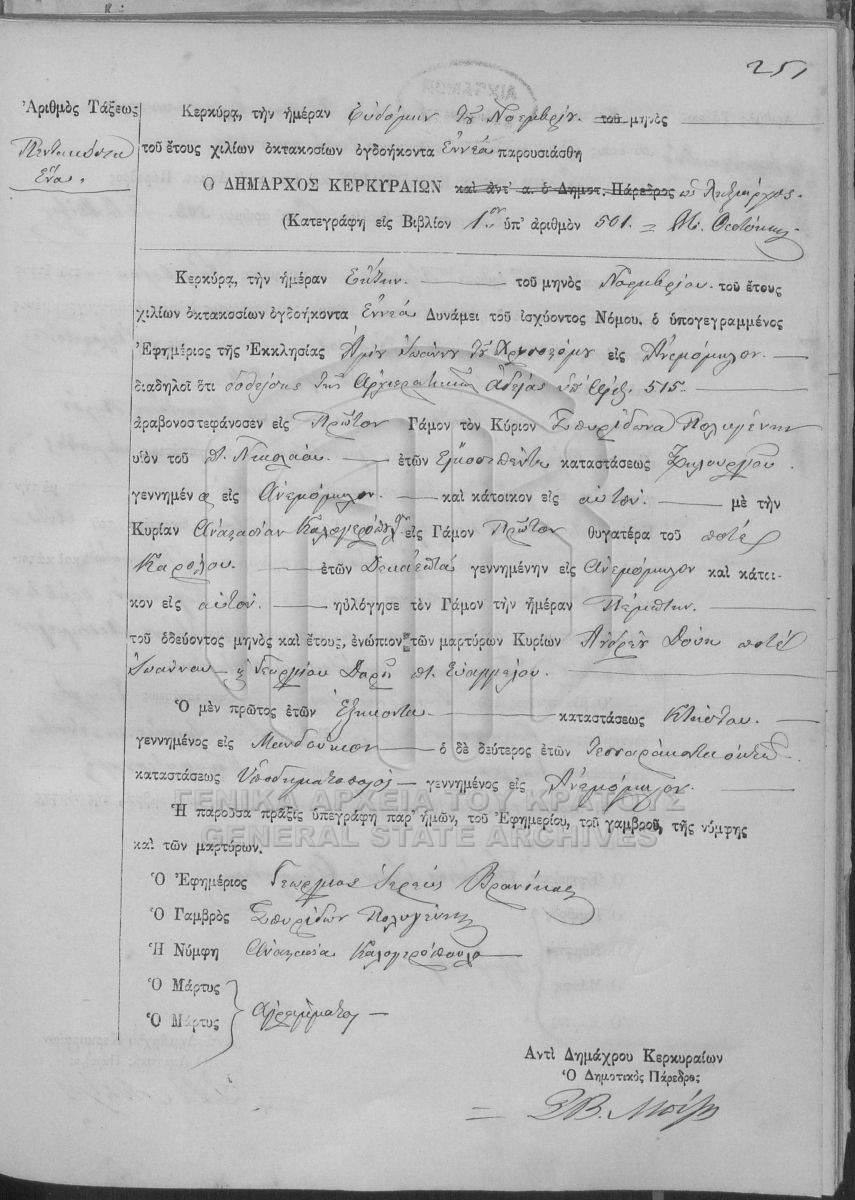 251
Ἀριθμὸς Τάξεως
Πεντακόσια
Ἕνα.
Κερκύρᾳ, τὴν ἡμέραν ἑβδόμην τοῦ Νοεμβρίου. τοῦ μηνὸς
τοῦ ἔτους χιλίων ὀκτακοσίων ὀγδοήκοντα ἐννέα παρουσιάσθη
Ο ΔΗΜΑΡΧΟΣ ΚΕΡΚΥΡΑΙΩΝ καὶ ἀντ' α. ὁ Δημοτ. Πάρεδρος ὡς Ληξίαρχος.
(Κατεγράφη εἰς Βιβλίον 1ον ὑπ' ἀριθμὸν 501. = Μ. Θεοτόκης
Κερκύρᾳ, τὴν ἡμέραν Ἕκτην. τοῦ μηνὸς Νοεμβρίου. τοῦ ἔτους
χιλίων ὀκτακοσίων ὀγδοήκοντα Ἐννέα Δυνάμει τοῦ ἰσχύοντος Νόμου, ὁ ὑπογεγραμμένος
Ἐφημέριος τῆς Ἐκκλησίας Ἁγίου Ἰωάννου τοῦ Χρυσοστόμου εἰς Ἀνεμόμυλον.
διαδηλοῖ ὅτι δοθείσης τῆς Ἀρχιερατικῆς ἀδείας ὑπ' ἀριθ. 515.
ἀραβονοστεφάνοσεν εἰς Πρῶτον Γάμον τὸν Κύριον Σπυρίδωνα Πολυγένην
υἱὸν τοῦ π. Νικολάου. ἐτῶν Εἰκοσιπέντε καταστάσεως Ξυλουργοῦ.
γεννημένο εἰς Ἀνεμόμυλον. καὶ κάτοικον εἰς αὐτόν. μὲ τὴν
Κυρίαν Ἀναστασίαν Καλογεροπούλου εἰς Γάμον Πρῶτον θυγατέρα τοῦ ποτέ
Καρόλου. ἐτῶν Δεκαεπτά γεννημένην εἰς Ἀνεμόμυλον καὶ κάτοι-
κον εἰς αὐτόν. ηὐλόγησε τὸν Γάμον τὴν ἡμέραν Πέμπτην.
τοῦ ὁδεύοντος μηνὸς καὶ ἔτους, ἐνώπιον τῶν μαρτύρων Κυρίων Ἀνδρέου ποτέ
Ἰωάννου Γεωργίου π. Εὐαγγέλου.
Ὁ μὲν πρῶτος ἐτῶν Ἑξήκοντα καταστάσεως Κτίστου.
γεννημένος εἰς Μανδούκιον ὁ δὲ δεύτερος ἐτῶν τεσσαράκοντα ὀκτὼ
καταστάσεως Ὑποδηματοποιός γεννημένος εἰς Ἀνεμόμυλον.
ΓΕΝΙΚΑ ΑΡΧΕΙΑ ΤΟΥ ΚΡΑΤΟΥΣ
Ἡ παροῦσα πρᾶξις ὑπεγράφη παρ' ἡμῶν, τοῦ Ἐφημερίου, τοῦ γαμβροῦ, τῆς νύμφης
GENERAL STATE ARCHIVES
καὶ τῶν μαρτύρων.
Ὁ Ἐφημέριος Γεώργιος Ἱερεὺς
Ὁ Γαμβρὸς Σπυρίδων Πολυγένης
Ἡ Νύμφη Ἀναστασία Καλογεροπούλου
Ὁ Μάρτυς
Ὁ Μάρτυς Ἀγράμματοι
Αντὶ Δημάχρου Κερκυραίων
Ὁ Δημοτικὸς Πάρεδρος